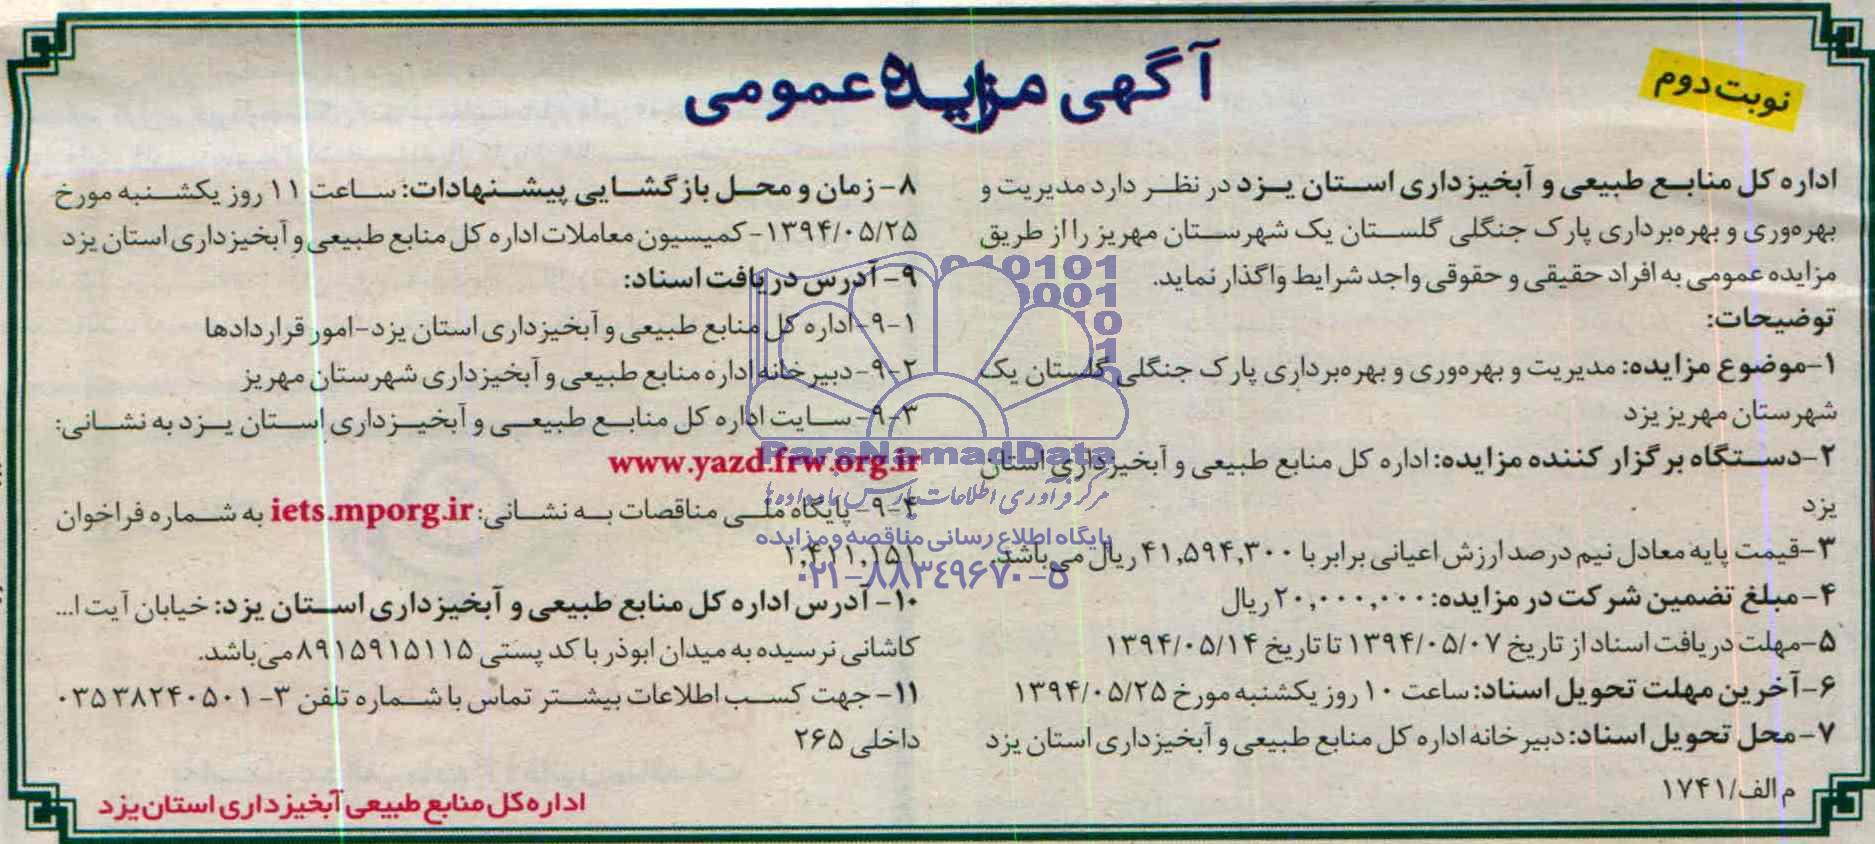 نوبت دوم
آگهی مزایده عمومی
اداره کل منابع طبیعی و آبخیزداری استان یزد در نظر دارد مدیریت و
بهره‌وری و بهره‌برداری پارک جنگلی گلستان یک شهرستان مهریز را از طریق
مزایده عمومی به افراد حقیقی و حقوقی واجد شرایط واگذار نماید.
توضیحات:
۱-موضوع مزایده: مدیریت و بهره‌وری و بهره‌برداری پارک جنگلی گلستان یک
شهرستان مهریز یزد
۲-دستگاه برگزار کننده مزایده: اداره کل منابع طبیعی و آبخیزداری استان
یزد
۳-قیمت پایه معادل نیم درصد ارزش اعیانی برابر با ۴۱,۵۹۴,۳۰۰ ریال می‌باشد.
۴-مبلغ تضمین شرکت در مزایده: ۲۰,۰۰۰,۰۰۰ ریال
۵-مهلت دریافت اسناد از تاریخ ۱۳۹۴/۰۵/۰۷ تا تاریخ ۱۳۹۴/۰۵/۱۴
۶-آخرین مهلت تحویل اسناد: ساعت ۱۰ روز یکشنبه مورخ ۱۳۹۴/۰۵/۲۵
۷-محل تحویل اسناد: دبیرخانه اداره کل منابع طبیعی و آبخیزداری استان یزد
م الف/۱۷۴۱
۸-زمان و محل بازگشایی پیشنهادات: ساعت ۱۱ روز یکشنبه مورخ
۱۳۹۴/۰۵/۲۵-کمیسیون معاملات اداره کل منابع طبیعی و آبخیزداری استان یزد
۹- آدرس دریافت اسناد:
۹-۱-اداره کل منابع طبیعی و آبخیزداری استان یزد-امور قراردادها
۹-۲-دبیرخانه اداره منابع طبیعی و آبخیزداری شهرستان مهریز
۹-۳-سایت اداره کل منابع طبیعی و آبخیزداری استان یزد به نشانی:
www.yazd.frw.org.ir
۹-۴-پایگاه ملی مناقصات به نشانی: iets.mporg.ir به شماره فراخوان
۱,۴۱۱,۱۵۱
۱۰- آدرس اداره کل منابع طبیعی و آبخیزداری استان یزد: خیابان آیت ا...
کاشانی نرسیده به میدان ابوذر با کد پستی ۸۹۱۵۹۱۵۱۱۵ می‌باشد.
۱۱-جهت کسب اطلاعات بیشتر تماس با شماره تلفن ۳-۰۳۵۳۸۲۴۰۵۰۱
داخلی ۲۶۵
اداره کل منابع طبیعی آبخیزداری استان یزد
ParsNamadData
مرکز فرآوری اطلاعات پارس نماد داده‌ها
پایگاه اطلاع رسانی مناقصه و مزایده
۰۲۱-۸۸۳۴۹۶۷۰-۵